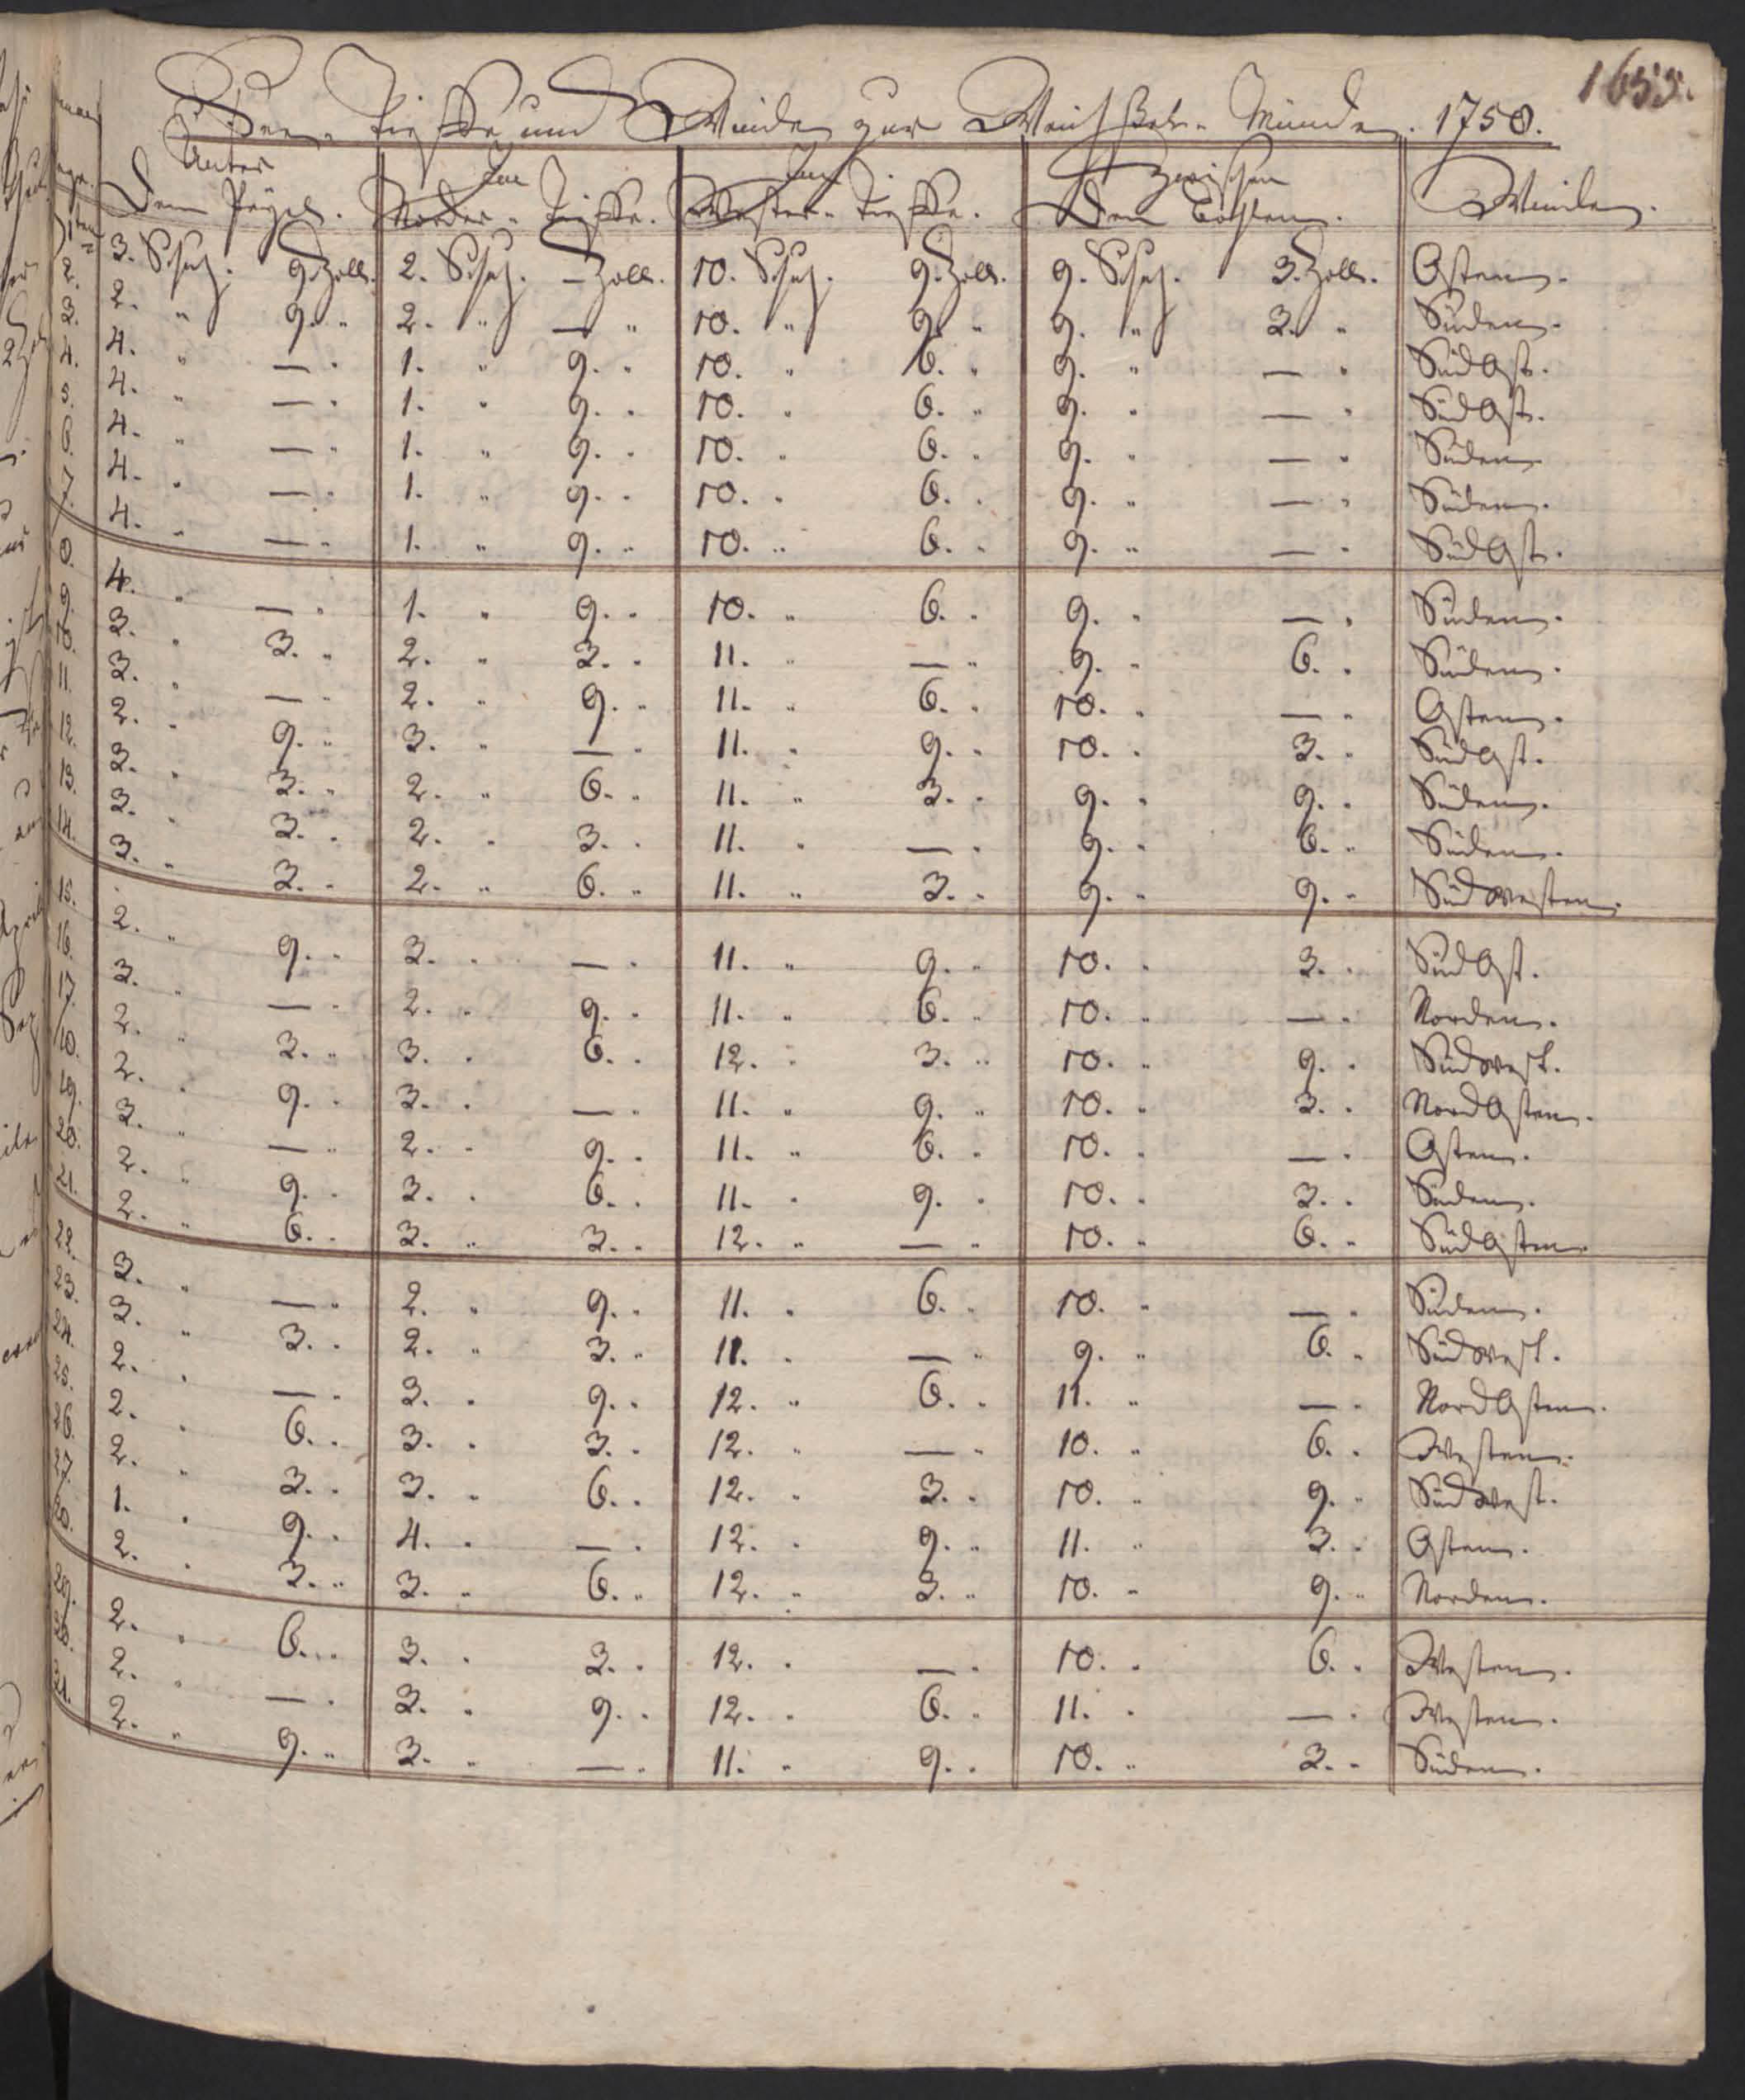 Tieffe und Winde zur Weichsel-Münde. 1758. 1655.
Unter dem Pegel. Im Norder-Tieffe. Im Wester-Tieffe. Zwischen den Winde.
1. 3. Schuh. 9. Zoll. 2. Schuh. — Zoll. 10. Schuh. 9. Zoll. 9. Schuh. 3. Zoll. Osten.
2. 3. " 9. " 2. " — " 10. " 9. " 9. " 3. " Süden.
3. 4. " — " 1. " 9. " 10. " 6. " 9. " — " SüdOst.
4. 4. " — " 1. " 9. " 10. " 6. " 9. " — " SüdOst.
5. 4. " — " 1. " 9. " 10. " 6. " 9. " — " Süden.
6. 4. " — " 1. " 9. " 10. " 6. " 9. " — " Süden.
7. 4. " — " 1. " 9. " 10. " 6. " 9. " — " SüdOst.
8. 4. " — " 1. " 9. " 10. " 6. " 9. " — " Süden.
9. 3. " 3. " 2. " 3. " 11. " — " 9. " 6. " Süden.
10. 3. " — " 2. " 9. " 11. " 6. " 10. " — " Osten.
11. 2. " 9. " 3. " — " 11. " 9. " 10. " 3. " SüdOst.
12. 3. " 3. " 2. " 6. " 11. " 3. " 9. " 9. " Süden.
13. 3. " 3. " 2. " 3. " 11. " — " 9. " 6. " Süden.
14. 3. " 3. " 2. " 6. " 11. " 3. " 9. " 9. " Südwesten.
15. 2. " 9. " 3. " — " 11. " 9. " 10. " 3. " SüdOst.
16. 3. " — " 2. " 9. " 11. " 6. " 10. " — " Norden.
17. 2. " 3. " 3. " 6. " 12. " 3. " 10. " 9. " Südwest.
18. 2. " 9. " 3. " — " 11. " 9. " 10. " 3. " NordOsten.
19. 3. " — " 2. " 9. " 11. " 6. " 10. " — " Osten.
20. 2. " 9. " 3. " 6. " 11. " 9. " 10. " 3. " Süden.
21. 2. " 6. " 3. " 3. " 12. " — " 10. " 6. " SüdOsten.
22. 3. " — " 2. " 9. " 11. " 6. " 10. " — " Süden.
23. 3. " 3. " 2. " 3. " 11. " — " 9. " 6. " Südwest.
24. 2. " — " 3. " 9. " 12. " 6. " 11. " — " NordOsten.
25. 2. " 6. " 3. " 3. " 12. " — " 10. " 6. " Westen.
26. 2. " 3. " 3. " 6. " 12. " 3. " 10. " 9. " Südwest.
27. 1. " 9. " 4. " — " 12. " 9. " 11. " 3. " Osten.
28. 2. " 3. " 3. " 6. " 12. " 3. " 10. " 9. " Norden.
29. 2. " 6. " 3. " 3. " 12. " — " 10. " 6. " Westen.
30. 2. " — " 3. " 9. " 12. " 6. " 11. " — " Westen.
31. 2. " 9. " 3. " — " 11. " 9. " 10. " 3. " Süden.